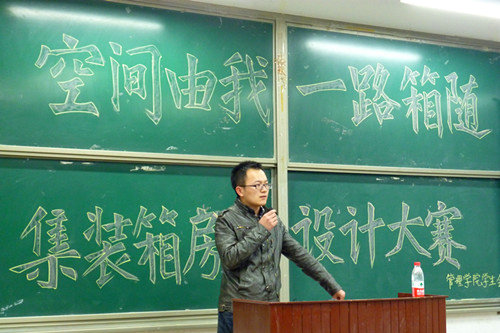 空间由我 一路箱随
集装箱房 设计大赛
管理学院学生会